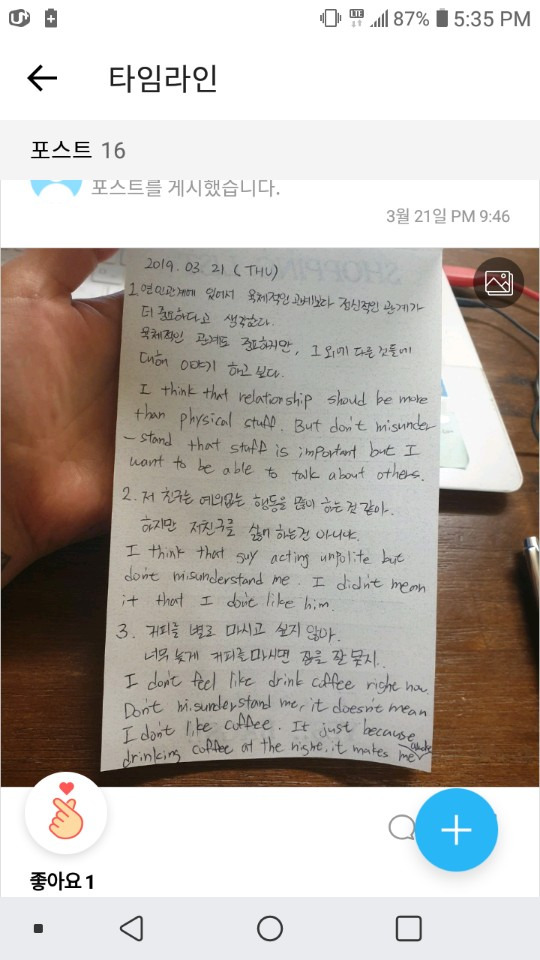 LTE 87% 5:35 PM
타임라인
포스트 16
포스트를 게시했습니다.
3월 21일 PM 9:46
2019. 03 21 (THU)
1. 연인관계에 있어서 육체적인 관계보다 정신적인 관계가
더 중요하다고 생각한다.
육체적인 관계도 중요하지만, 그 외에 다른 것들에
대해 이야기 하고 싶다.
I think that relationship should be more
than physical stuff. But don't misunder
-stand that stuff is important but I
want to be able to talk about others.
2. 저 친구는 예의없는 행동을 많이 하는 것 같아.
하지만 저친구를 싫어 하는건 아니야.
I think that guy acting unpolite but
don't misunderstand me. I didn't mean
it that I don't like him.
3. 커피를 별로 마시고 싶지 않아.
너무 늦게 커피를 마시면 잠을 잘 못자.
I don't feel like drink coffee right now.
Don't misunderstand me, it doesn't mean
I don't like coffee. It just because
drinking coffee at the night. it makes me awake
좋아요 1